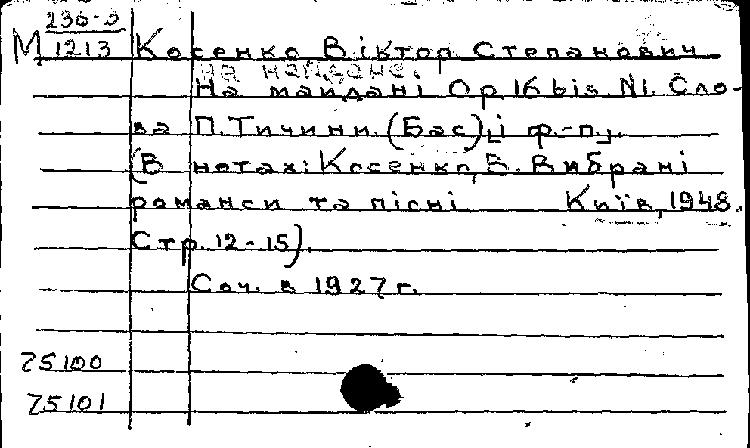 М 236-3
1213 Косенко Віктор Степанович
На майдані.
На майдані Ор. 16 bis N1. Сло-
ва П. Тичини. (Бас) [і ф.-п.].
(В нотах: Косенко, В. Вибрані
романси та пісні Київ, 1948.
Стр. 12-15).
Соч. в 1927 г.
75100
75101